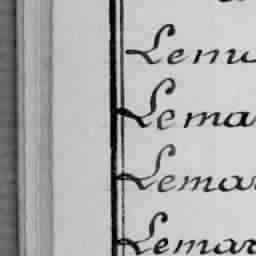 Lenu
Lema
Lemar
Lemar